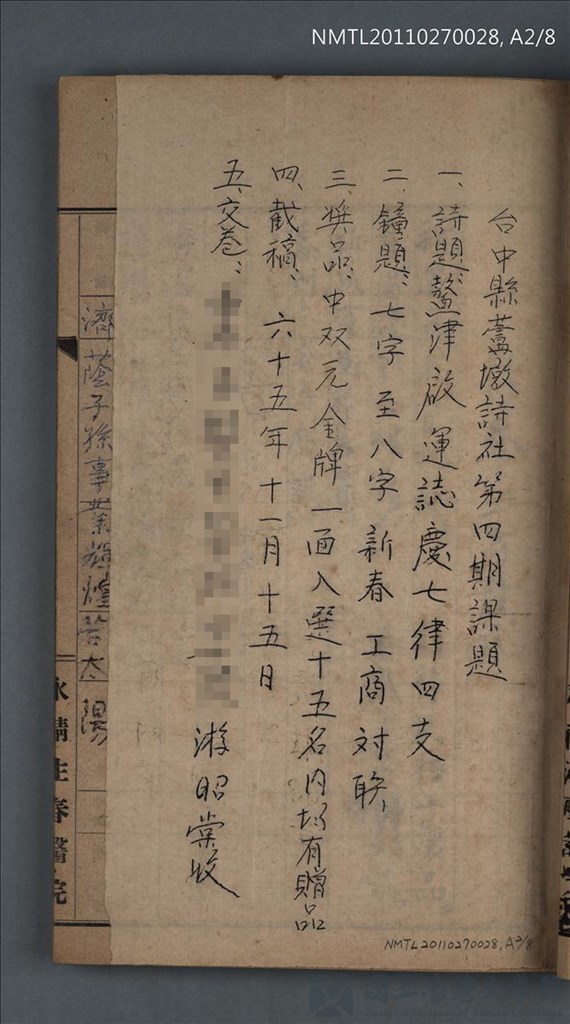 NMTL20110270028, A2/8
台中縣蘆墩詩社第四期課題
一、詩題鰲津啟運誌慶七律四支
二、鐘題：七字至八字新春工商对联
三、獎品、中双元金牌一面入選十五名內均有贈品
四、截稿、六十五年十一月十五日
五、交卷：
游昭棠收
濟蔭子孫事業輝煌若太陽
永靖生春醫院
NMTL20110270028, A2/8